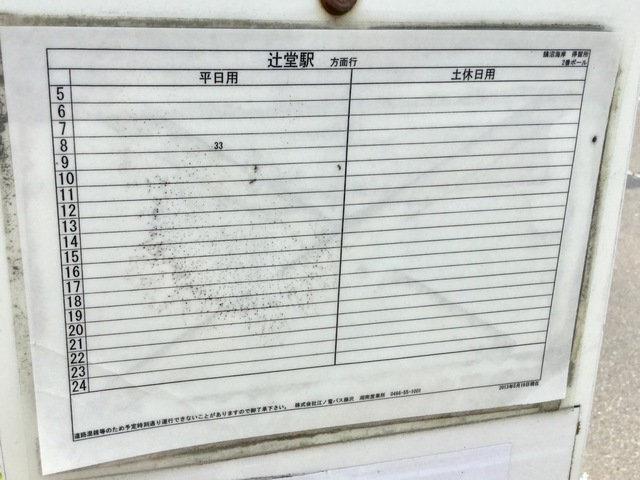 辻堂駅 方面行
鵠沼海岸 停留所
2番ポール
平日用 土休日用
5
6
7
8 33
9
10
11
12
13
14
15
16
17
18
19
20
21
22
23
24
道路混雑等のため予定時刻通り運行できないことがありますので御了承下さい。 株式会社江ノ電バス藤沢 湘南営業所 0466-55-1001
2013年9月16日現在